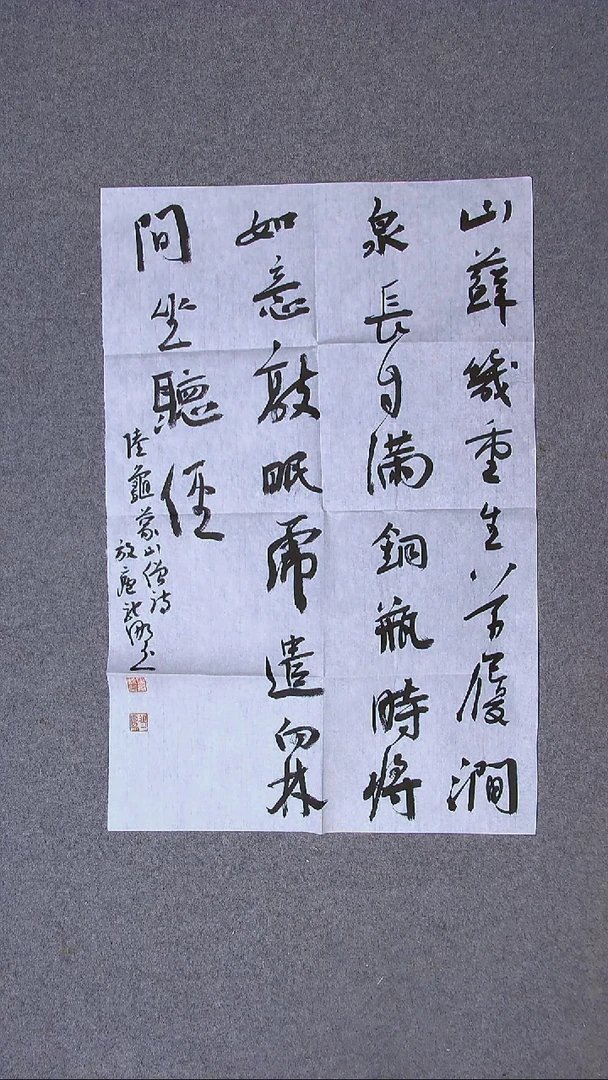 山蘚幾重生草履澗
泉長自滿銅瓶時將
如意敲眠虎遣向林
間坐聽經
陸龜蒙山僧詩
放庵